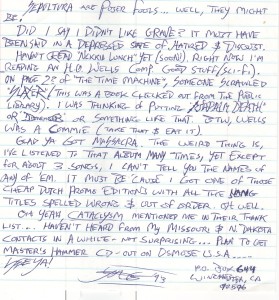 SEPULTURA ARE POSER FOOLS... WELL, THEY MIGHT
BE!
DID I SAY I DIDN'T LIKE GRAVE? IT MUST HAVE
BEEN SAID IN A DEPRESSED STATE OF HATRED & DISGUST.
HAVN'T SEEN NAKED LUNCH YET (SOON). RIGHT NOW I'M
READING AN H.G. WELLS COMP. GOOD STUFF (SCI-FI).
ON PAGE 23 OF "THE TIME MACHINE", SOMEONE SCRAWLED
"SLAYER! THIS WAS A BOOK CHECKED OUT FROM THE PUBLIC
LIBRARY). I WAS THINKING OF PUTTING
OR OR SOMETHING LIKE THAT. BTW, WELLS
WAS A COMMIE (TAKE THAT & EAT IT).
GLAD YA GOT MASSACRA. THE WEIRD THING IS,
I'VE LISTENED TO THAT ALBUM MANY TIMES, YET EXCEPT
FOR ABOUT 3 SONGS, I CAN'T TELL YOU THE NAMES OF
ANY OF EM. IT MUST BE CAUSE I GOT ONE OF THOSE
CHEAP DUTCH PROMO EDITIONS WITH ALL THE SONG
TITLES SPELLED WRONG & OUT OF ORDER. OH WELL.
OH YEAH, CATACLYSM MENTIONED ME IN THEIR THANK
LIST... HAVEN'T HEARD FROM MY MISSOURI & N. DAKOTA
CONTACTS IN A WHILE - NOT SURPRISING... PLAN TO GET
MASTER'S HAMMER CD - OUT ON OSMOSE USA....
SEE YA!
93
P.O. BOX 644
WINCHESTER, CA